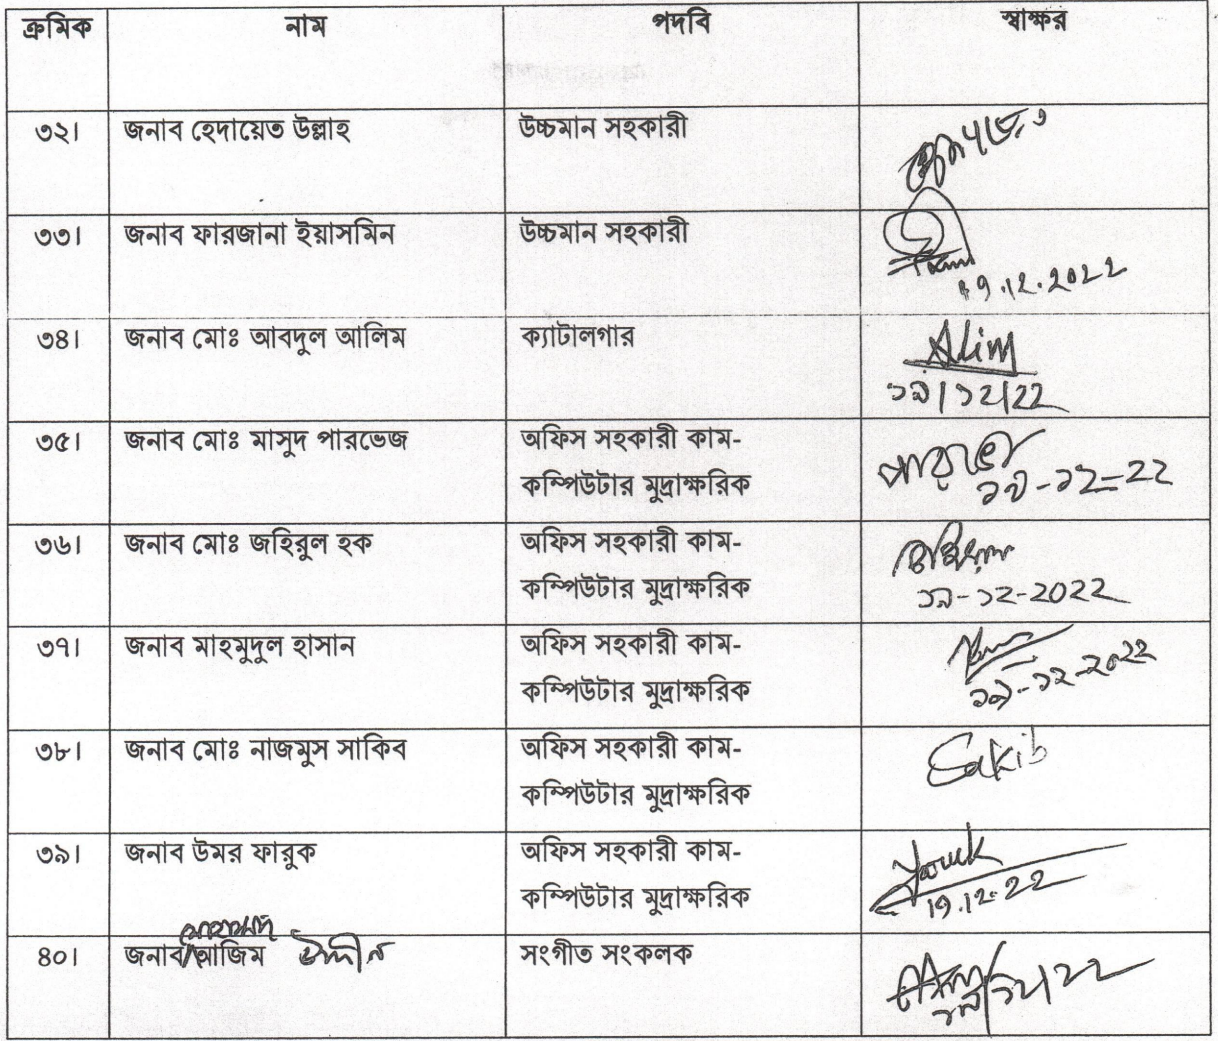 ক্রমিক নাম পদবি স্বাক্ষর
৩২। জনাব হেদায়েত উল্লাহ উচ্চমান সহকারী
৩৩। জনাব ফারজানা ইয়াসমিন উচ্চমান সহকারী
19.12.2022
৩৪। জনাব মোঃ আবদুল আলিম ক্যাটালগার Alim
১৯/১২/22
৩৫। জনাব মোঃ মাসুদ পারভেজ অফিস সহকারী কাম-
কম্পিউটার মুদ্রাক্ষরিক ১৯-১২-22
৩৬। জনাব মোঃ জহিরুল হক অফিস সহকারী কাম-
কম্পিউটার মুদ্রাক্ষরিক ১৯-১২-2022
৩৭। জনাব মাহমুদুল হাসান অফিস সহকারী কাম-
কম্পিউটার মুদ্রাক্ষরিক ১৯-১২-২০২২
৩৮। জনাব মোঃ নাজমুস সাকিব অফিস সহকারী কাম- Sakib
কম্পিউটার মুদ্রাক্ষরিক
৩৯। জনাব উমর ফারুক অফিস সহকারী কাম- Faruk
কম্পিউটার মুদ্রাক্ষরিক 19.12.22
মোহাম্মদ
৪০। জনাব আজিম উদ্দীন সংগীত সংকলক